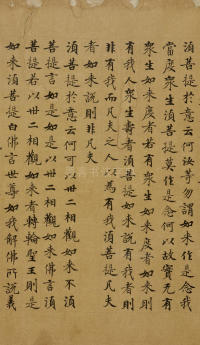 須菩提於意云何汝等勿謂如来作是念我
當度衆生須菩提莫作是念何以故實无有
衆生如来度者若有衆生如来度者如来則
有我人衆生壽者須菩提如来說有我者則
非有我而凡夫之人以為有我須菩提凡夫
者如来說則非凡夫
須菩提於意云何可以卅二相觀如来不須
菩提言如是如是以卅二相觀如来佛言須
菩提若以卅二相觀如来者轉輪聖王則是
如来須菩提白佛言世尊如我解佛所說義